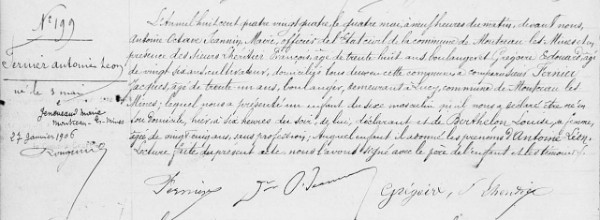 N° 199
Fernier Antoine Léon
né le 3 mai
Gendreau Marie
Montceau-les-Mines
27 Janvier 1906
L'an mil huit cent quatre vingt quatre le quatre mai à neuf heures du matin, devant nous,
Antoine Octave Jeannin, Maire, officier de l'Etat civil de la commune de Montceau-les-Mines et en
présence des sieurs Théritier François, âgé de trente huit ans boulanger et Grégoire Edouard, âgé
de vingt six ans, cultivateur, domiciliés tous deux en cette commune a comparu Fernier
Jacques, âgé de trente un ans, boulanger, demeurant à Lucy, commune de Montceau les
Mines; lequel nous a présenté un enfant du sexe masculin qu'il nous a déclaré être né en
son domicile, hier à six heures du soir, de lui, déclarant et de Berthelon Louise, sa femme,
âgée de vingt cinq ans, sans profession; Auquel enfant il a donné les prénoms d'Antoine Léon.
Lecture faite du présent acte nous l'avons signé avec le père de l'enfant et les témoins.
Fernier O. Jeannin Grégoire